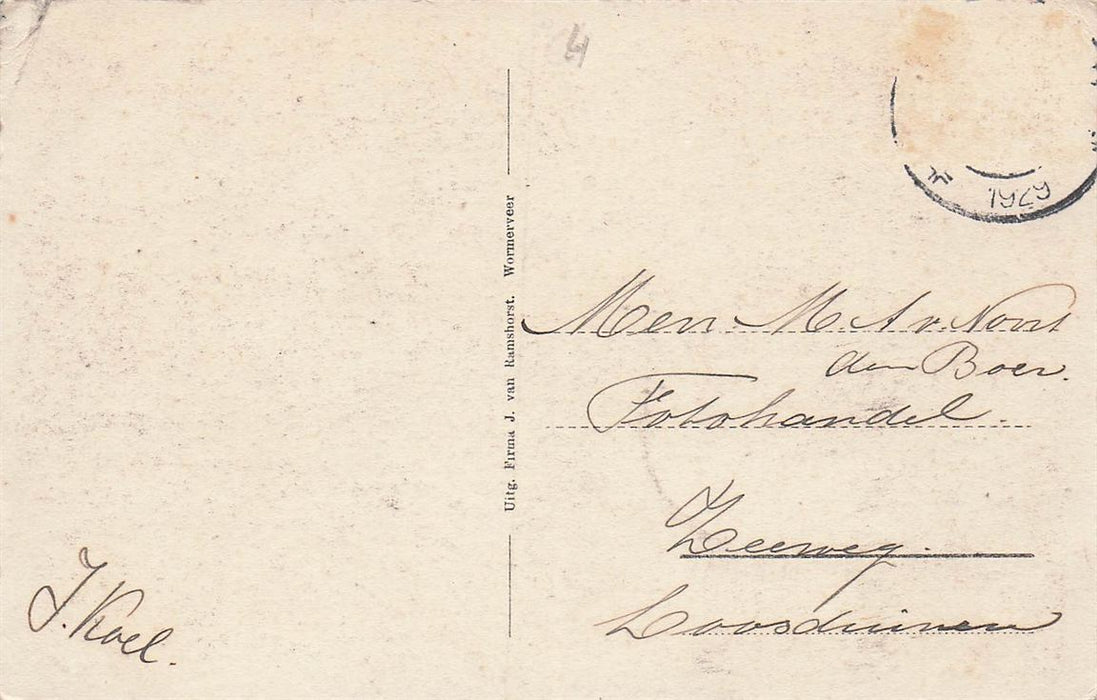 4
1929
Uitg. Firma J. van Ramshorst. Wormerveer
Men. M. A. v. Noort
den Boer.
Fotohandel.
Zeeweg.
Loosduinen
J. Kael.